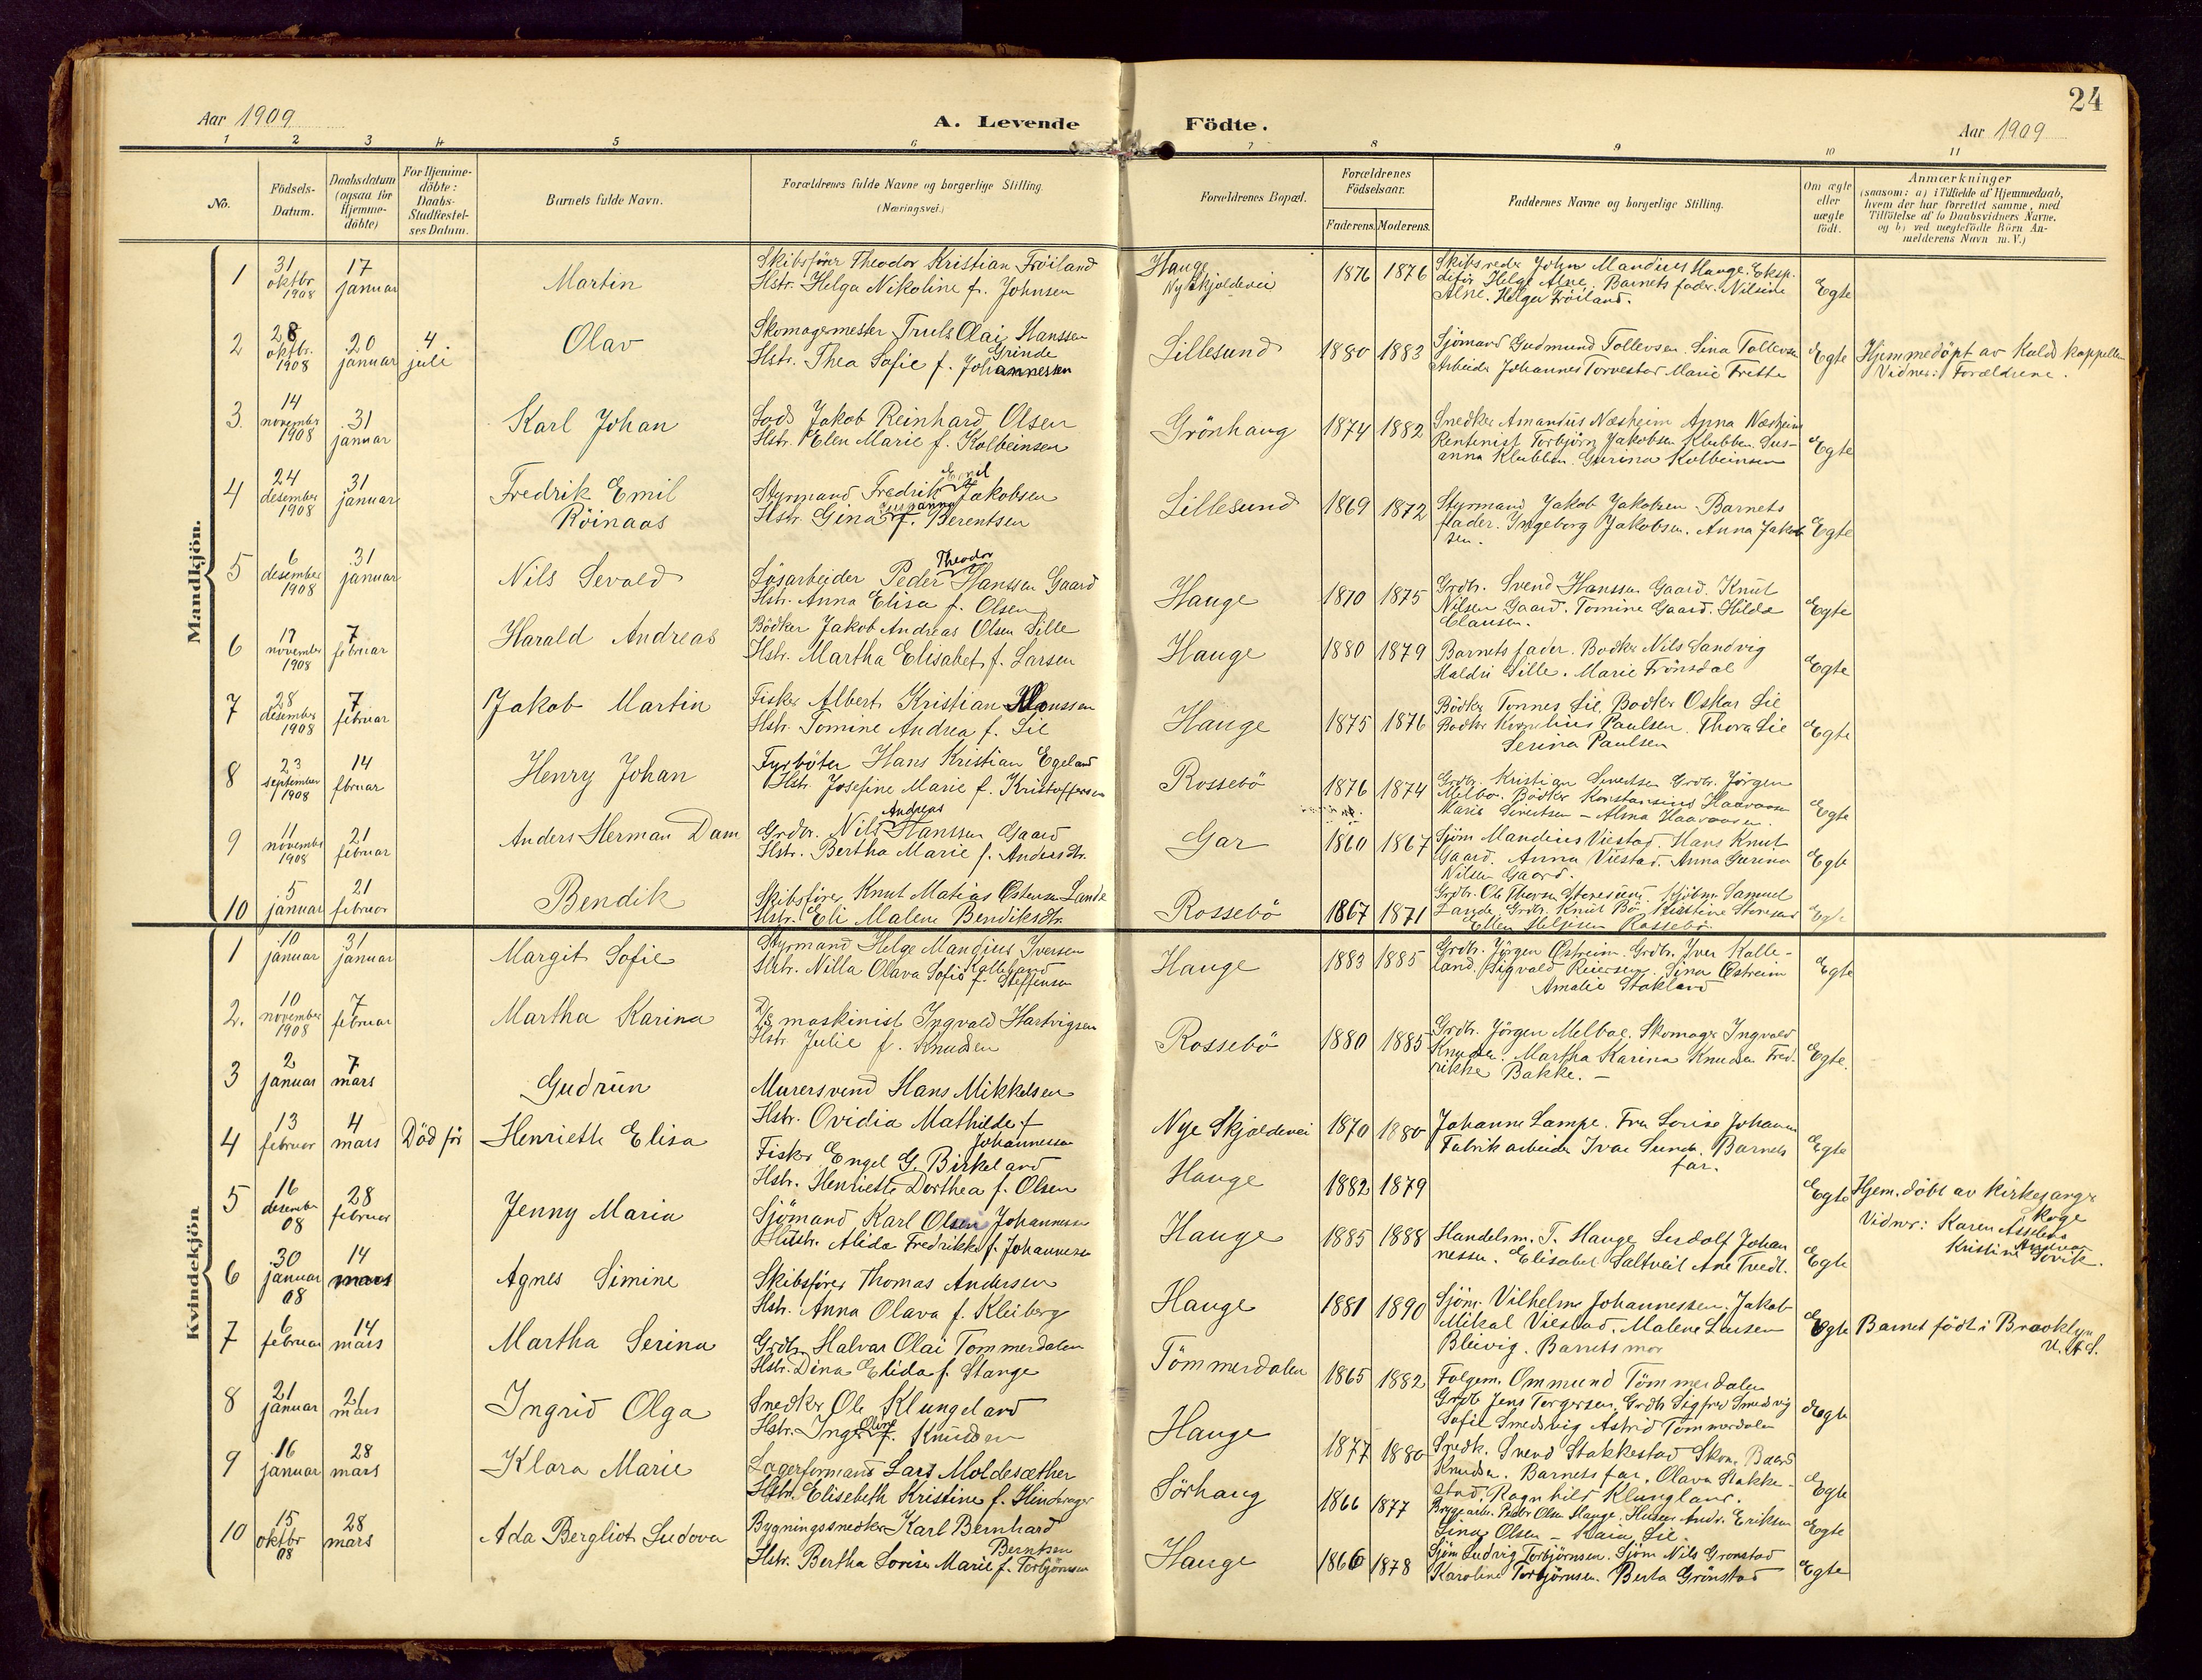 24
Aar 1909
A. Levende Födte.
Aar 1909
1 2 3 4 5 6 7 8 9 10 11
No.
Födsels-Datum.
Daabsdatum (ogsaa for Hjemme-döbte)
For Hjemme-döbte: Daabs-Stadfæstel-ses Datum.
Barnets fulde Navn.
Forældrenes fulde Navne og borgerlige Stilling. (Næringsvei.)
Forældrenes Bopæl.
Forældrenes Födselsaar.
Faderens. Moderens.
Faddernes Navne og borgerlige Stilling.
Om ægte eller uægte födt.
Anmærkninger
(saasom: a) i Tilfælde af Hjemmedaab,
hvem der har forrettet samme, med
Tilföielse af to Daabsvidners Navne.
og b) ved uægtefödte Börn An-
melderens Navn m. V.)
Mandkjön.
1 31 oktbr 1908 17 januar Martin
Skibsförer Theodor Kristian Fröiland
Hstr. Helga Nikoline f. Johnsen
Hauge Ny Skjoldevei 1876 1876
Skibsreder John Mandius Hauge. Eksp.
ditör Helge Alne. Barnets fader. Nilsine
Alne. Helga Fröiland.
Egte
2 28 oktbr. 1908 20 januar 4 juli Olav
Skomagermester Truls Olai Hanssen Grinde
Hstr. Thea Sofie f. Johannessen
Lillesund 1880 1883
Sjömand Gudmund Tollevsen. Sina Tollevsen
Arbeider Johannes Torvestad Marie Frette
Egte
Hjemmedöpt av Kald kappellan
Vidner: Forældrene.
3. 14 november 1908 31 januar Karl Johan
Lods Jakob Reinhard Olsen
Hstr. Elen Marie f. Kolbeinsen
Grönhaug 1874 1882
Snedker Amandus Næsheim Anna Næsheim
Rentenist Torbjörn Jakobsen Klubben. Sus-
anna Klubben. Gurina Kolbeinsen
Egte
4 24 desember 1908 31 januar Fredrik Emil Röinaas
Styrmand Fredrik Emil Jakobsen
Hstr. Gina Susanna f. Berentsen
Lillesund 1869 1872
Styrmand Jakob Jakobsen. Barnets
fader. Ingeborg Jakobsen. Anna Jakob-
sen.
Egte
5 6 desember 1908 31 januar Nils Sevald
Lösarbeider Peder Theodor Hanssen Gaard
Hstr. Anna Elisa f. Olsen
Hauge 1870 1875
Grdbr. Svend Hanssen Gaard. Knut
Nilsen Gaard. Tomine Gaard. Hilda
Clausen.
Egte
6 17 november 1908 7 februar Harald Andreas
Bödker Jakob Andreas Olsen Lille
Hstr. Martha Elisabet f. Larsen
Hauge 1880 1879
Barnets fader. Bodker Nils Sandvig
Haldis Lille. Marie Frönsdal
Egte
7 28 desember 1908 7 februar Jakob Martin
Fisker Albert Kristian Hanssen
Hstr. Tomine Andrea f. Lie
Hauge 1875 1876
Bödker Tönnes Lie. Bodker Oskar Lie
Bodker Kornelius Paulsen. Thora Lie
Serina Paulsen
Egte
8 23 september 1908 14 fbruar Henry Johan
Fyrböter Hans Kristian Egeland
Hstr. Josefine Marie f. Kristoffersen
Rossebö 1876 1874
Grdbr. Kristian Sivertsen Grdbr. Jörgen
Melbo. Bödker Konstansius Haavaasen
Marie Sivertsen – Alma Haavaasen.
Egte
9 11 november 1908 21 februar Anders Herman Dam
Grdbr. Nils Andreas Hanssen Gaard
Hstr. Bertha Marie f. Andersdtr.
Gar 1860 1867
Sjöm Mandius Viestad. Hans Knut
Gaard. Anna Viestad. Anna Gurina
Nilsen Gaard.
Egte
10 5 januar 21 februar Bendik
Skibsförer Knut Matias Östensen Lande
Hstr. Eli Malene Bendiksdtr.
Rossebö 1867 1871
Grdbr. Ole Thorsn Storesund. Kjöbm. Samuel
Lande. Grdbr. Knut Bö. Kristine Storesund
Ellen Helgesen Rossebö.
Egte
Kvindekjön
1 10 januar 31 januar Margit Sofie
Styrmand Helge Mandius Iversen Kalleland
Hstr. Nilla Olava Sofie f. Steffensen
Hauge 1883 1885
Grdbr. Jörgen Östreim. Grdbr. Iver Kalle-
land. Sigvald Reiersen. Sina Östreim
Amalie Stakland
Egte
2. 10 november 1908 7 februar Martha Karina
D/S maskinist Ingvald Hartvigsen
Hstr Julie f. Knudsen
Rossebö 1880 1885
Grdbr. Jörgen Melbae. Skomager Ingvald
Knudsen. Martha Karina Knudsen Fred-
rikke Bakke. –
Egte.
3 2 januar 7 mars Gudrun
Murersvend Hans Mikkelsen
Hstr. Ovidia Mathilde f. Johannessen
Nye Skjoldevei 1870 1880
Johanne Lampe. Fru Lovise Johannes
Fabrikarbeider Ivar Sunde. Barnets
far.
Egte
4 13 februar 4 mars Död för Henriette Elisa
Fisker Engel G. Birkeland
Hstr. Henriette Dorthea f. Olsen
Hauge 1882 1879
Egte
Hjem. döbt av kirkesanger
Koge
Vidner: Karen Asseløva
Kristine Andrea Sövik.
5 16 desember 08 28 februar Jenny Maria
Sjömand Karl Olsen Johannesen
Hustr. Alida Fredrikke f. Johannesen
Hauge 1885 1888
Handelsm. T. Hauge. Ludolf Johan-
nessen. Elisabet Saltveit Ane Tvedt.
Egte
6 30 januar 08 14 mars Agnes Simine
Skibsförer Thomas Andersen
Hstr. Anna Olava f. Kleiberg
Hauge 1881 1890
Sjöm. Vilhelm Johannessen. Jakob
Mikal Viestad. Malene Larsen
Bleivig. Barnets mor
Egte
Barnet födt i Brooklyn
U. A S.
7 6 februar 14 mars Martha Serina
Grdbr. Halvar Olai Tommerdalen
Hstr. Dina Elida f. Stange
Tömmerdalen 1865 1882
Folgem. Ommund Tömmerdalen
Grdb Jens Torgersen. Grdb Sigfred Smedsvig
Sofie Smedsvig Astrid Tömmerdalen
Egte
8 21 januar 21 mars Ingrid Olga
Snedker Ole Klungeland
Hstr. Inger Oline f. Knudsen
Hauge 1877 1880
Snedk. Svend Stakkestad Skom. Baard
Knudsen. Barnets far. Olava Stakke-
stad. Ragnhild Klungland.
Egte
9 16 januar 28 mars Klara Marie
Lagerformand Lars Moldesæther
Hstr. Elisebeth Kristine f. Hinderager
Sörhaug 1866 1877
Bryggearb. Peder Olsen Hauge. Andr. Eriksen
Sina Olsen – Maia Lie.
Egte
10 15 oktbr 08 28 mars Ada Bergliot Ludova
Bygningssnedker Karl Bernhard Berntsen
Hstr. Bertha Lovise Marie f. Torbjörnsen
Hauge 1866 1878
Sjöm Ludvig Torbjörnsen. Sjöm Nils Gronstad
Karoline Torbjörnsen. Berta Grönstad
Egte